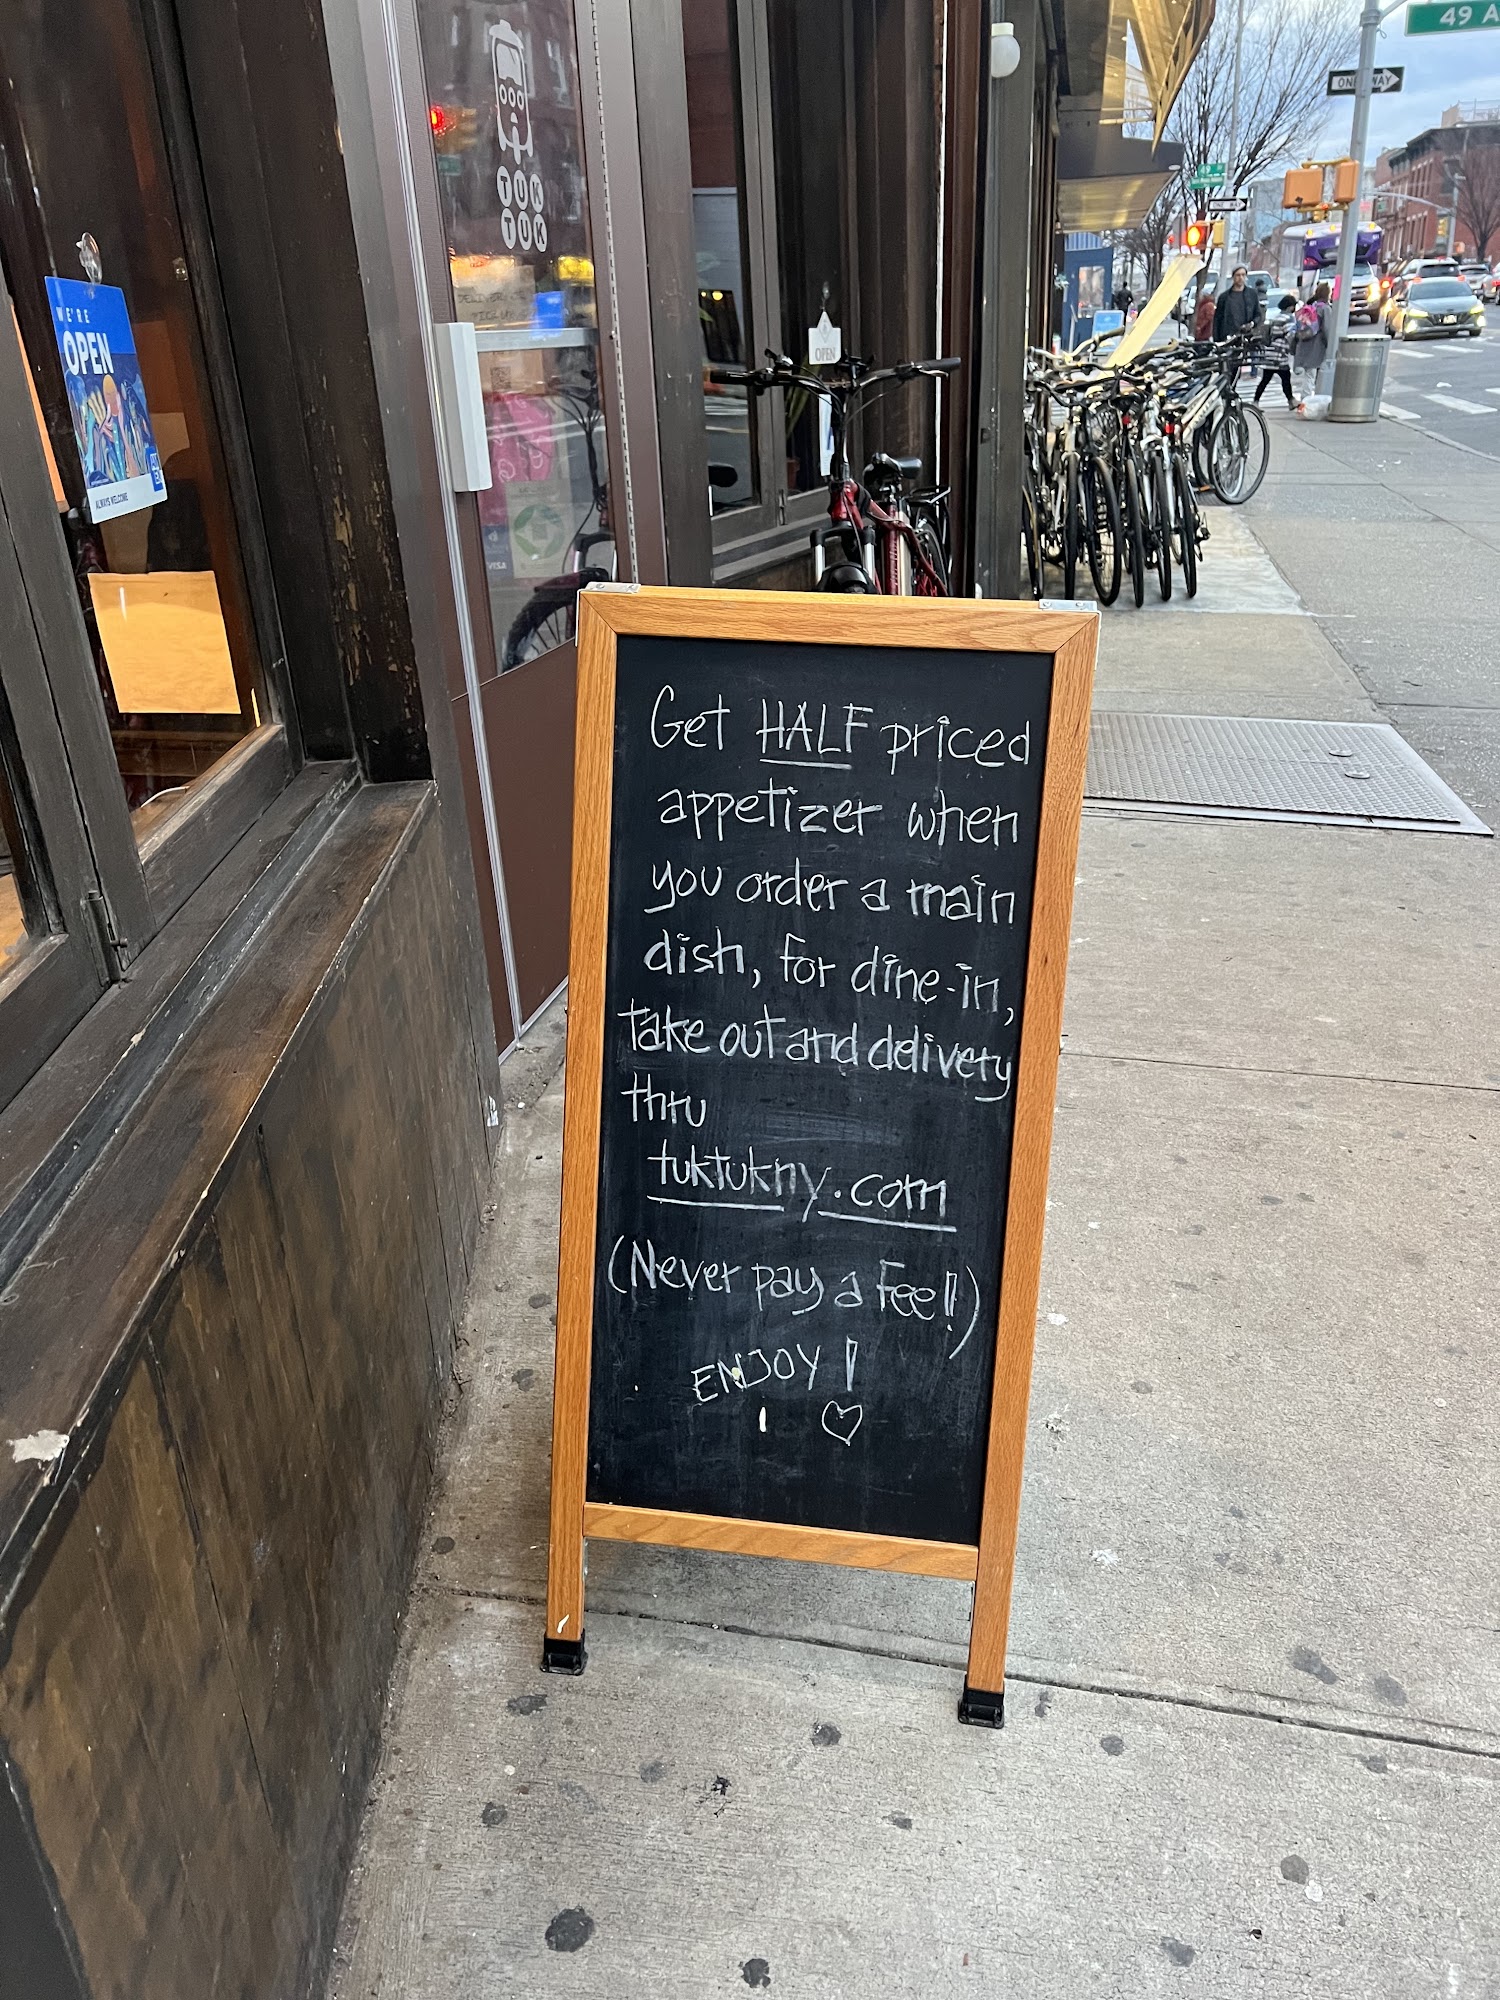 49 A
ONE WAY
TUK
TUK
WE'RE
OPEN
ALWAYS WELCOME
OPEN
VISA
Get HALF priced
appetizer when
you order a main
dish, for dine-in,
take out and delivery
thru
tuktukny.com
(Never pay a fee!!)
ENJOY!